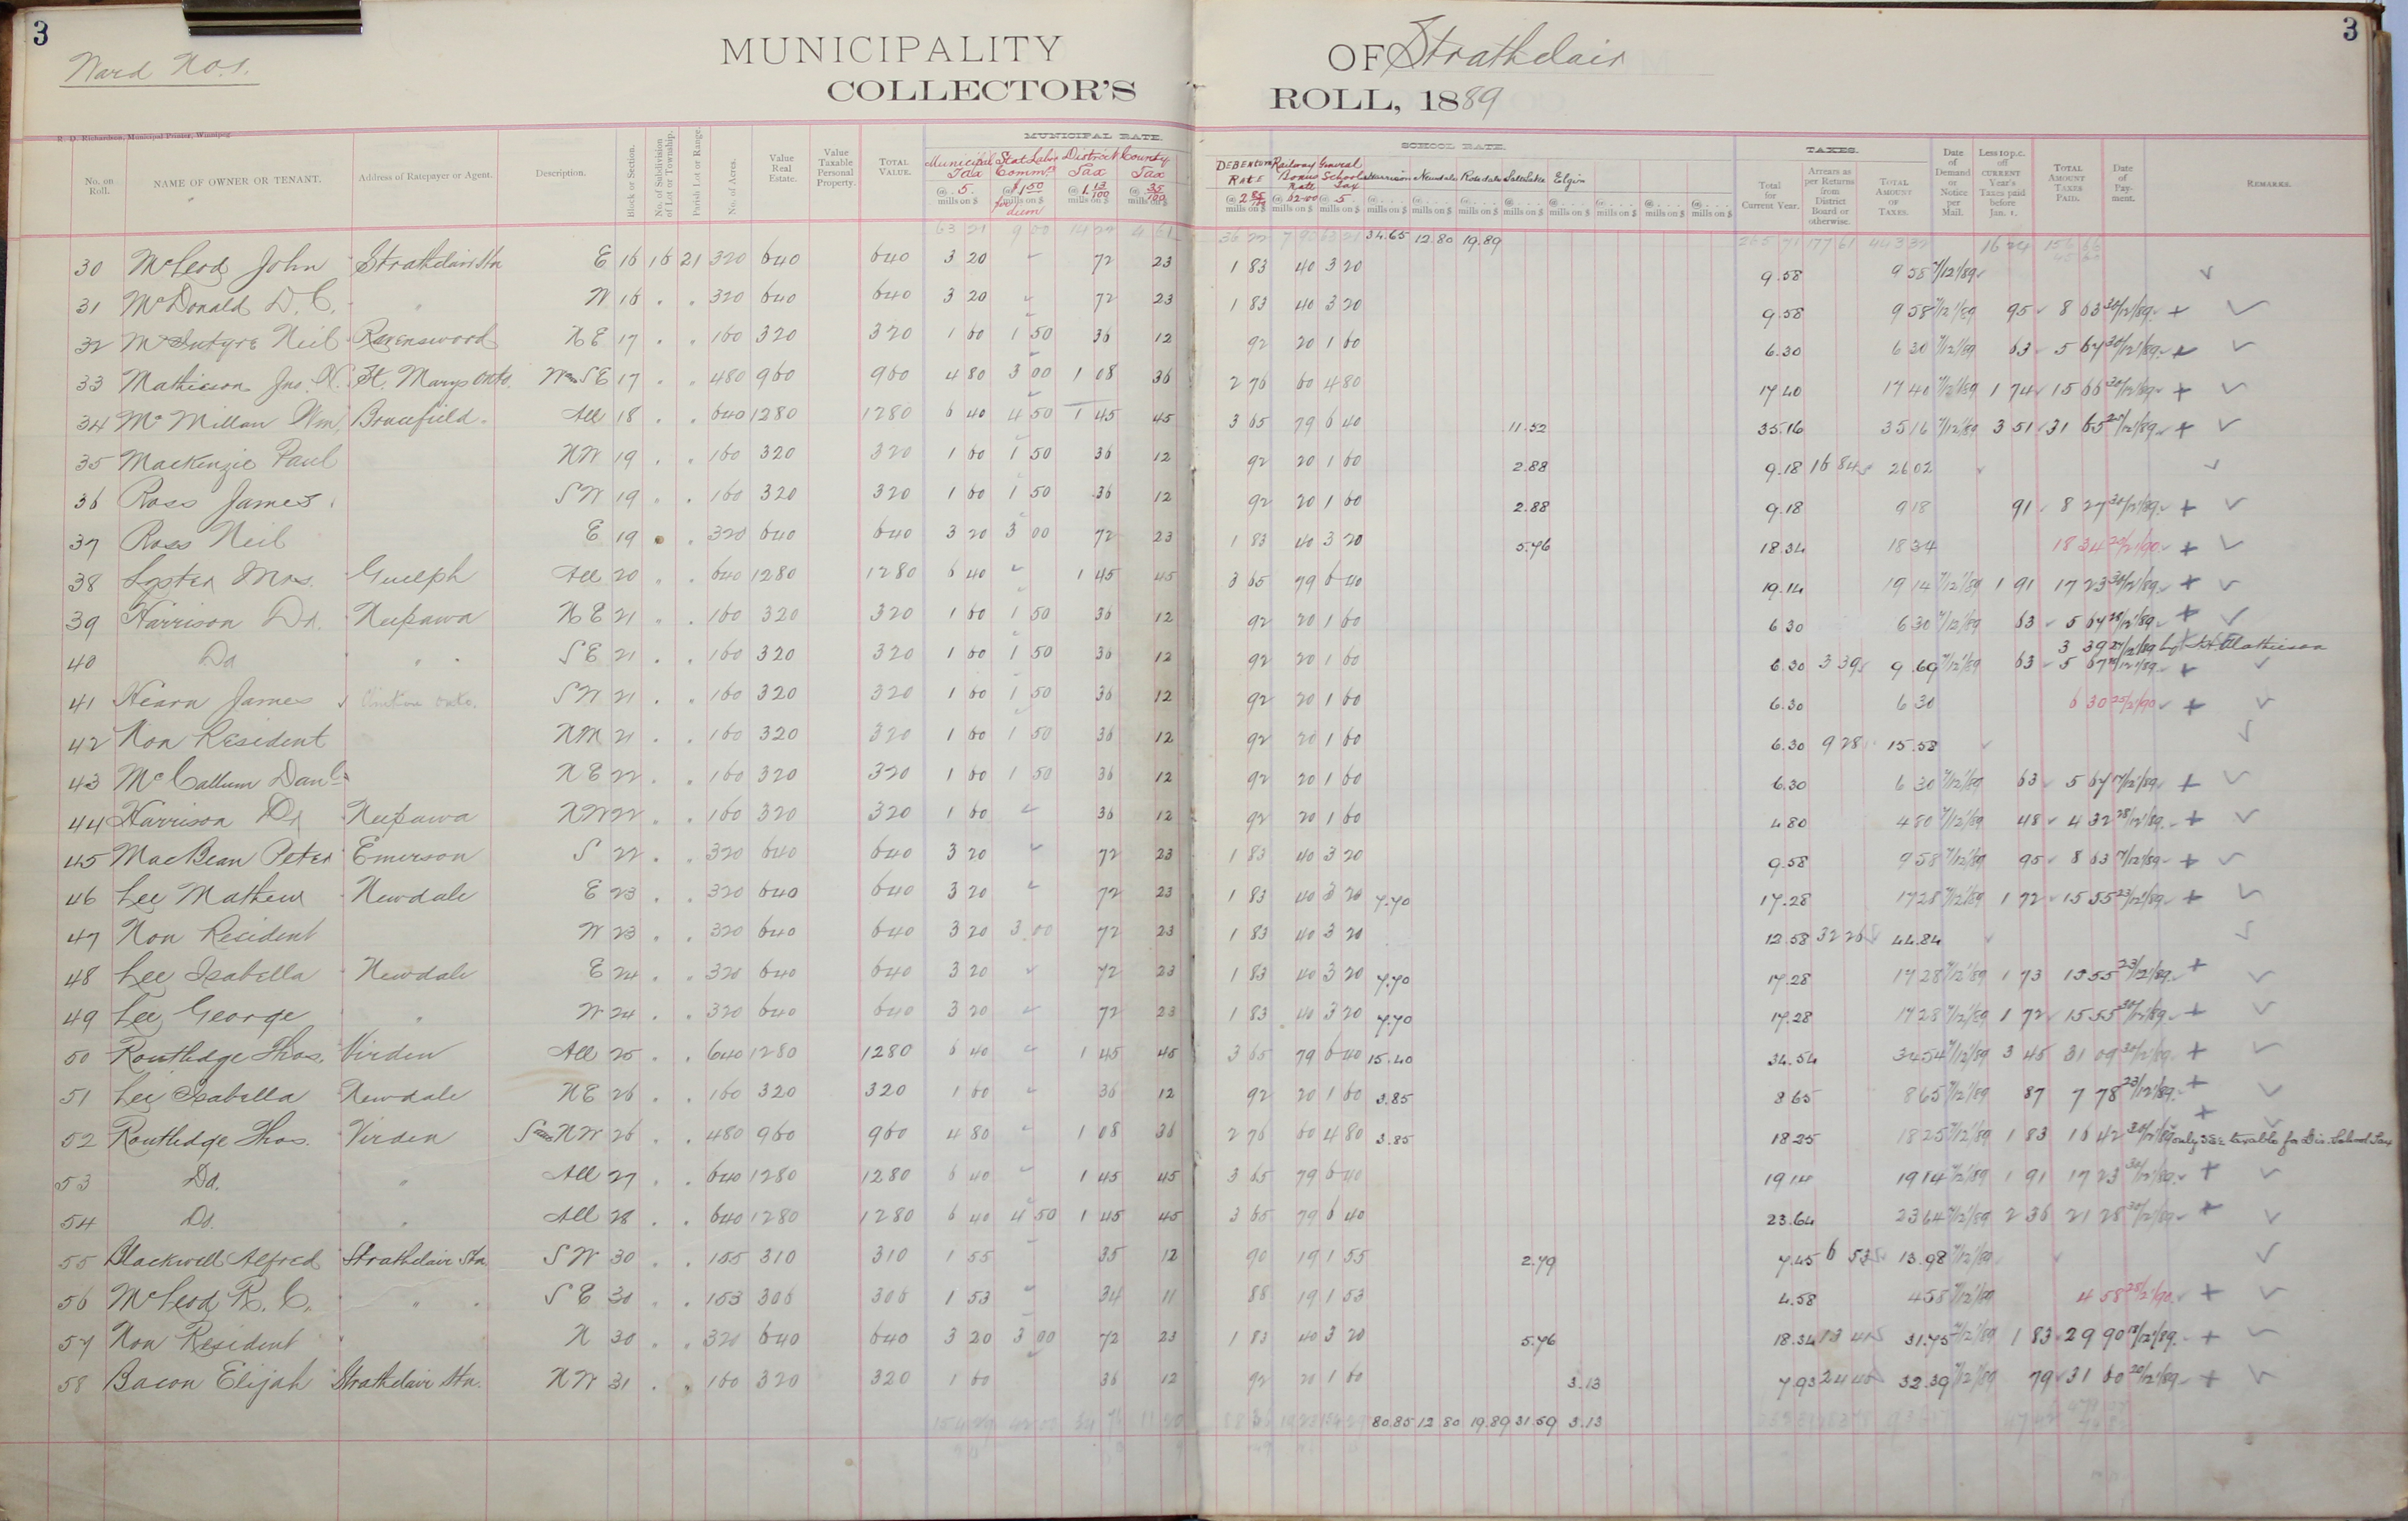 3
3
Ward No. 1.
MUNICIPALITY OF Strathclair
COLLECTOR'S ROLL, 1889
R. D. Richardson, Municipal Printer, Winnipeg.
MUNICIPAL RATE. SCHOOL RATE. TAXES.
No. on Roll. NAME OF OWNER OR TENANT. Address of Ratepayer or Agent. Description. Block or Section. No. of Subdivision of Lot or Township. Parish Lot or Range. No. of Acres. Value Real Estate. Value Taxable Personal Property. TOTAL VALUE. Municipal Tax @ 5. mills on $ Stat Labor Comm. @ $1 50 mills on $ District Tax @ 1 13/100 mills on $ County Tax @ 35/100 mills on $ DEBENTURE RATE @ 2 85/100 mills on $ Railway Bonus Rate @ mills on $ General School Tax @ 5 mills on $ Harrison @ mills on $ Newdale @ mills on $ Rosedale @ mills on $ Salt Lake @ mills on $ Elgin @ mills on $ @ mills on $ @ mills on $ @ mills on $ Total for Current Year. Arrears as per Returns from District Board or otherwise. TOTAL AMOUNT OF TAXES. Date of Demand or Notice per Mail. Less 10 p.c. off CURRENT Year's Taxes paid before Jan. 1. TOTAL AMOUNT TAXES PAID. Date of Payment. REMARKS.
63 21 9 00 14 22 4 61 36 22 7 90 63 21 34.65 12.80 19.89 265 71 177 61 443 32 16 24 156 66
30 McLeod John Strathclair Stn E 16 16 21 320 640 640 3 20 72 23 1 83 40 3 20 9.58 9 58 7/12/89 ✓
31 McDonald D. C. " W 16 . . 320 640 640 3 20 72 23 1 83 40 3 20 9.58 9 58 7/12/89 95 8 63 30/12/89 + ✓
32 McIntyre Neil Ravenswood N E 17 . . 160 320 320 1 60 1 50 36 12 92 20 1 60 6.30 6 30 7/12/89 63 5 67 30/12/89 + ✓
33 Mathieson Jno. N. St. Marys Onto. W & S E 17 . . 480 960 960 4 80 3 00 1 08 36 2 76 60 4 80 17 40 17 40 7/12/89 1 74 15 66 30/12/89 + ✓
34 McMillan Wm. Brucefield. All 18 . . 640 1280 1280 6 40 4 50 1 45 45 3 65 79 6 40 11.52 35.16 35 16 7/12/89 3 51 31 65 + ✓
35 Mackenzie Paul N W 19 . . 160 320 320 1 60 1 50 36 12 92 20 1 60 2.88 9.18 16 84 26 02 ✓
36 Ross James S W 19 . . 160 320 320 1 60 1 50 36 12 92 20 1 60 2.88 9.18 9 18 91 8 27 30/12/89 + ✓
37 Ross Neil E 19 . . 320 640 640 3 20 3 00 72 23 1 83 40 3 20 5.76 18.34 18 34 18 34 + ✓
38 Lyster Mrs. Guelph All 20 . . 640 1280 1280 6 40 1 45 45 3 65 79 6 40 19.14 19 14 7/12/89 1 91 17 23 30/12/89 + ✓
39 Harrison Dr. Neepawa N E 21 . . 160 320 320 1 60 1 50 36 12 92 20 1 60 6 30 6 30 7/12/89 63 5 67 28/12/89 + ✓
3 39 27/12/89 by J. N. Mathieson
40 Do " S E 21 . . 160 320 320 1 60 1 50 36 12 92 20 1 60 6.30 3 39 9.69 7/12/89 63 5 67 28/12/89 + ✓
41 Hearn James Clinton Onto. S W 21 . . 160 320 320 1 60 1 50 36 12 92 20 1 60 6.30 6 30 6 30 25/2/90 + ✓
42 Non Resident N W 21 . . 160 320 320 1 60 1 50 36 12 92 20 1 60 6.30 9 28 15.58 ✓
43 McCallum Danl. N E 22 . . 160 320 320 1 60 1 50 36 12 92 20 1 60 6.30 6 30 7/12/89 63 5 67 17/12/89 + ✓
44 Harrison Dr Neepawa N W 22 . . 160 320 320 1 60 36 12 92 20 1 60 4 80 4 80 7/12/89 48 4 32 28/12/89 + ✓
45 MacBean Peter Emerson S 22 . . 320 640 640 3 20 72 23 1 83 40 3 20 9.58 9 58 7/12/89 95 8 63 17/12/89 + ✓
46 Lee Mathew Newdale E 23 . . 320 640 640 3 20 72 23 1 83 40 3 20 7.70 17.28 17 28 7/12/89 1 72 15 55 23/12/89 + ✓
47 Non Resident W 23 . . 320 640 640 3 20 3.00 72 23 1 83 40 3 20 12.58 32 26 44.84 ✓
48 Lee Isabella Newdale E 24 . . 320 640 640 3 20 72 23 1 83 40 3 20 7.70 17.28 17 28 7/12/89 1 73 15 55 23/12/89 + ✓
49 Lee George " W 24 . . 320 640 640 3 20 72 23 1 83 40 3 20 7.70 17.28 17 28 7/12/89 1 72 15 55 + ✓
50 Routledge Thos. Virden All 25 . . 640 1280 1280 6 40 1 45 45 3 65 79 6 40 15.40 34.54 34 54 7/12/89 3 45 31 09 30/12/89 + ✓
51 Lee Isabella Newdale N E 26 . . 160 320 320 1 60 36 12 92 20 1 60 3.85 8 65 8 65 7/12/89 87 7 78 23/12/89 + ✓
52 Routledge Thos. Virden S & N W 26 . . 480 960 960 4 80 1 08 36 2 76 60 4 80 3.85 18 25 18 25 7/12/89 1 83 16 42 30/12/89 + only taxable for Dis. School Tax
53 Do. " All 27 . . 640 1280 1280 6 40 1 45 45 3 65 79 6 40 19 14 19 14 7/12/89 1 91 17 23 30/12/89 + ✓
54 Do. " All 28 . . 640 1280 1280 6 40 4 50 1 45 45 3 65 79 6 40 23.64 23 64 7/12/89 2 36 21 28 30/12/89 + ✓
55 Blackwell Alfred Strathclair Stn S W 30 . . 155 310 310 1 55 35 12 90 19 1 55 2.79 7.45 6 53 13.98 7/12/89 ✓
56 McLeod R. C. " S E 30 . . 153 306 306 1 53 34 11 88 19 1 53 4.58 4 58 7/12/89 4 58 + ✓
57 Non Resident N 30 . . 320 640 640 3 20 3 00 72 23 1 83 40 3 20 5.76 18.34 13 41 31.75 7/12/89 1 83 29 90 + ✓
58 Bacon Elijah Strathclair Stn. N W 31 . . 160 320 320 1 60 36 12 92 20 1 60 3.13 7.93 24 46 32.39 7/12/89 79 31 60 20/12/89 + ✓
80.85 12 80 19.89 31.59 3.13